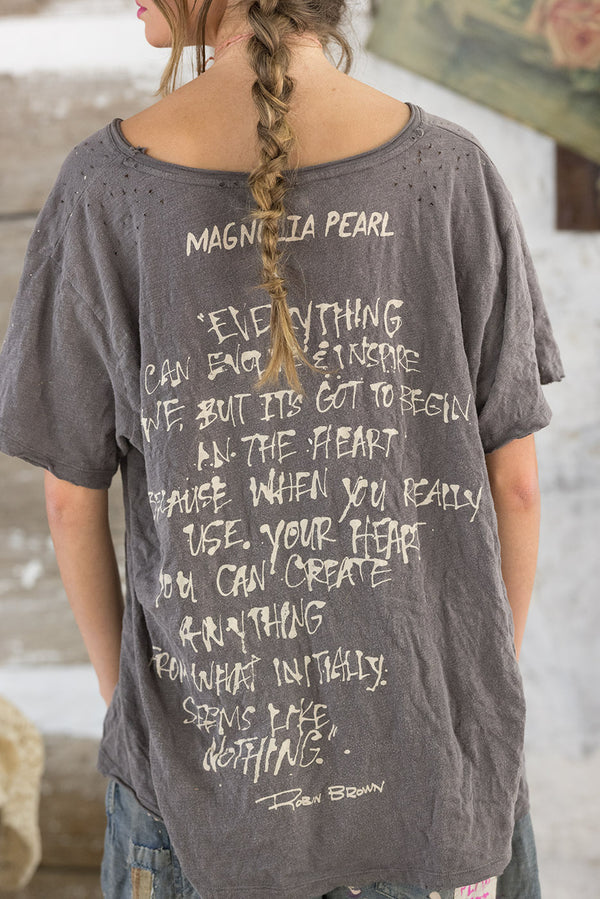 MAGNOLIA PEARL
"EVERYTHING
CAN EVOLVE & INSPIRE
ME, BUT IT'S GOT TO BEGIN
IN THE HEART
BECAUSE WHEN YOU REALLY
USE. YOUR HEART
YOU CAN CREATE
ANYTHING
FROM WHAT INITIALLY.
SEEMS LIKE
NOTHING."
ROBIN BROWN